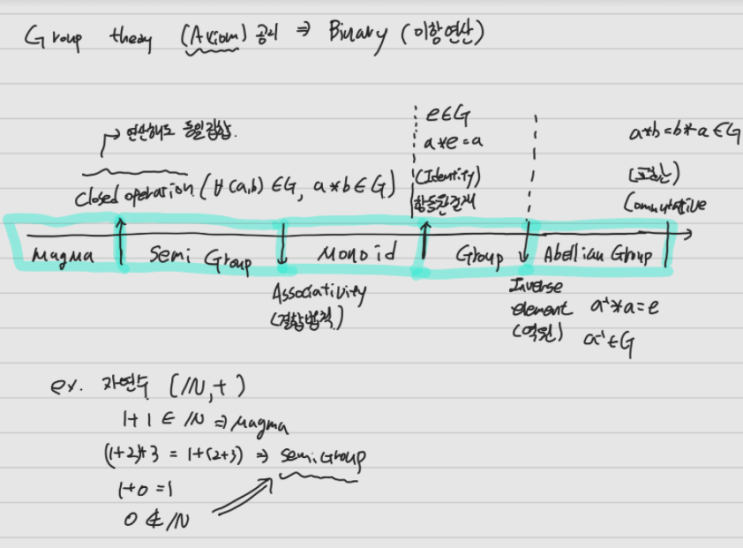 Group theory (Axiom) 공리 ⇒ Binary (이항연산)
→ 연산해도 동일집합.
Closed operation (∀(a,b) ∈G, a*b ∈ G)
e∈G
a*e=a
(Identity)
항등원존재
a*b=b*a ∈G
(교환)
Commutative
Magma Semi Group Monoid Group Abellian Group
Associativity
(결합법칙)
Inverse
element a⁻¹*a=e
(역원) a⁻¹∈G
ex. 자연수 (/N,+)
1+1 ∈ /N ⇒ Magma
(1+2)+3 = 1+(2+3) ⇒ Semi Group
1+0 =1
0 ∉ /N